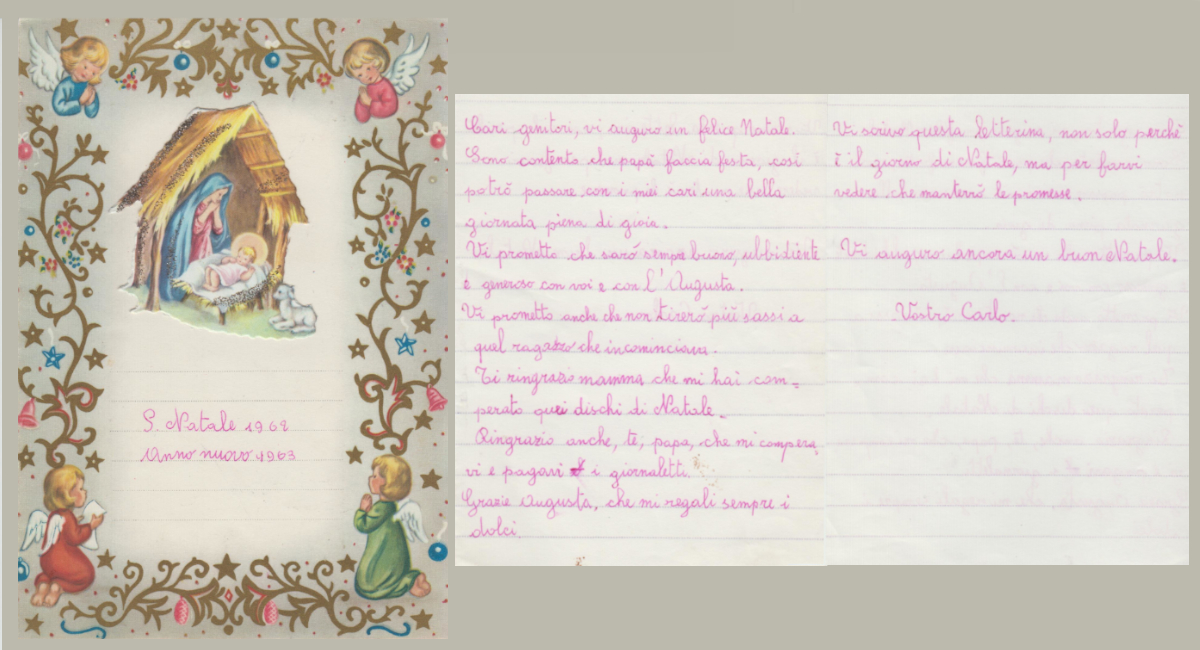 S. Natale 1962
Anno nuovo 1963
Cari genitori, vi auguro un felice Natale.
Sono contento che papà faccia festa, così
potrò passare con i miei cari una bella
giornata piena di gioia.
Vi prometto che sarò sempre buono, ubbidiente
e generoso con voi e con l'Augusta.
Vi prometto anche che non tirerò più sassi a
quel ragazzo che incominciava.
Ti ringrazio mamma che mi hai com=
perato quei dischi di Natale.
Ringrazio anche, te, papa, che mi compera
vi e pagavi i giornaletti.
Grazie Augusta, che mi regali sempre i
dolci.
Vi scrivo questa letterina, non solo perchè
è il giorno di Natale, ma per farvi
vedere che manterrò le promesse.
Vi auguro ancora un buon Natale.
Vostro Carlo.